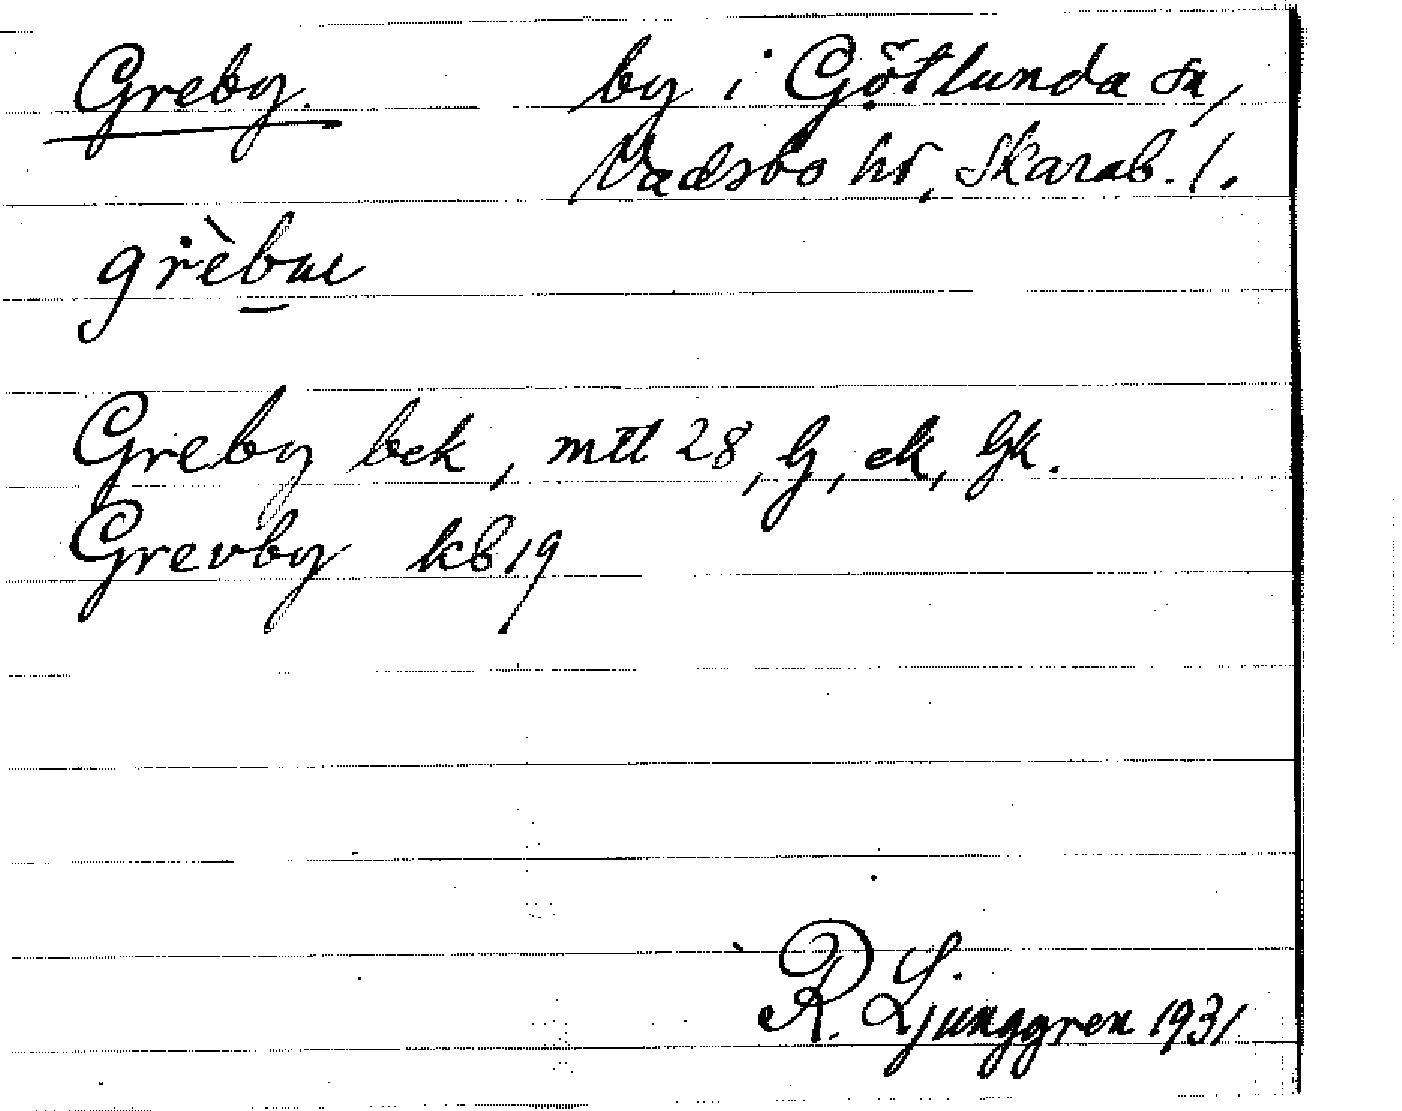 Greby. by i Götlunda sn,
Vadsbo hd, Skarab. l.
grèbue
Greby bek, mtl 28, G, ek, Gk.
Grevby kb 19
R. Ljunggren 1931